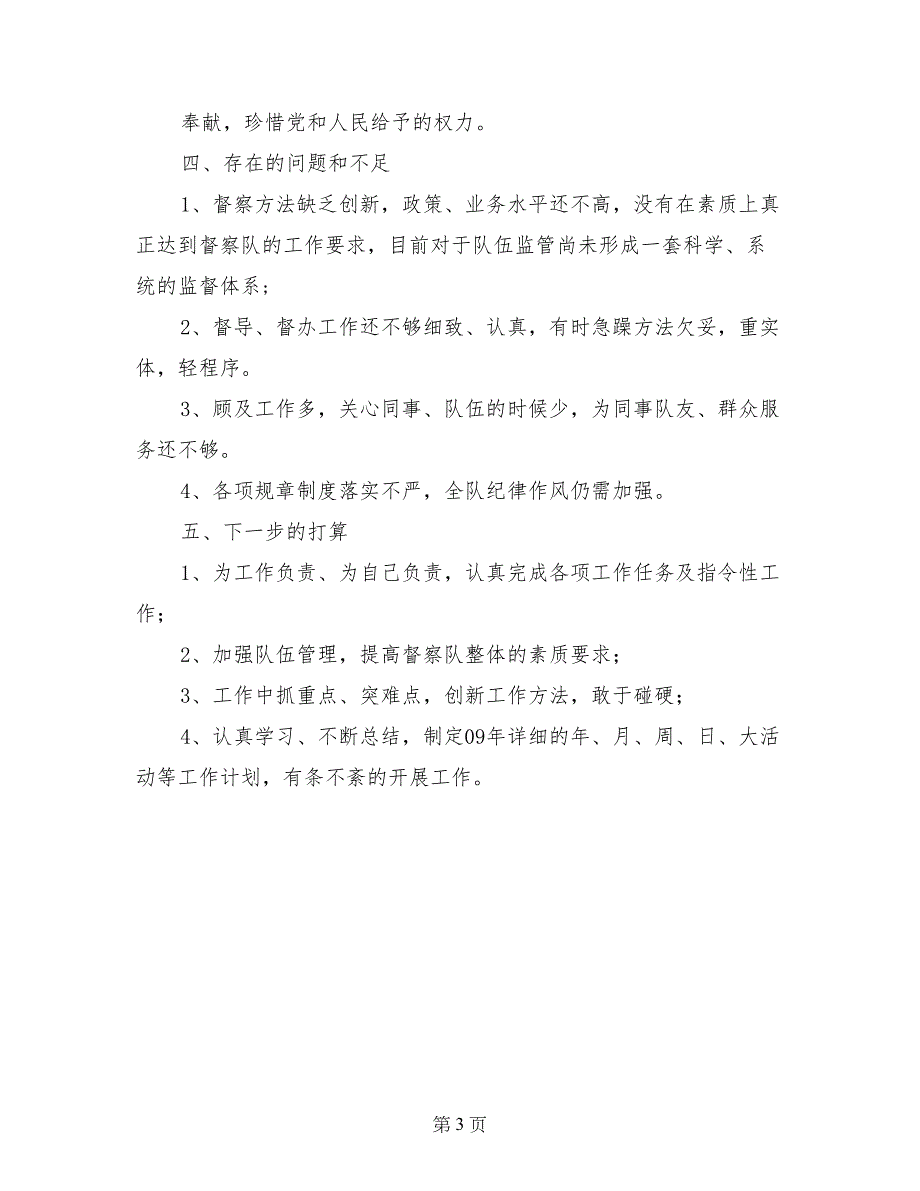 奉献，珍惜党和人民给予的权力。
四、存在的问题和不足
1、督察方法缺乏创新，政策、业务水平还不高，没有在素质上真
正达到督察队的工作要求，目前对于队伍监管尚未形成一套科学、系
统的监督体系；
2、督导、督办工作还不够细致、认真，有时急躁方法欠妥，重实
体，轻程序。
3、顾及工作多，关心同事、队伍的时候少，为同事队友、群众服
务还不够。
4、各项规章制度落实不严，全队纪律作风仍需加强。
五、下一步的打算
1、为工作负责、为自己负责，认真完成各项工作任务及指令性工
作；
2、加强队伍管理，提高督察队整体的素质要求；
3、工作中抓重点、突难点，创新工作方法，敢于碰硬；
4、认真学习、不断总结，制定09年详细的年、月、周、日、大活
动等工作计划，有条不紊的开展工作。
第 3 页